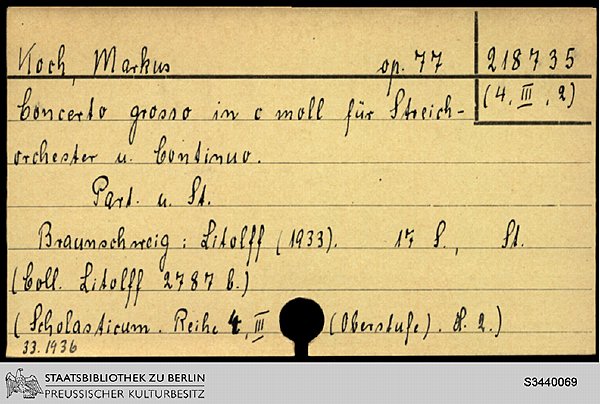 Koch, Markus op. 77 218735
(4, III, 2)
Concerto grosso in c moll für Streich-
orchester u. Continuo.
Part. u. St.
Braunschweig: Litolff (1933). 17 S., St.
(Coll. Litolff 2787 b.)
(Scholasticum. Reihe 4, III (Oberstufe). H. 2.)
33.1936
STAATSBIBLIOTHEK ZU BERLIN
PREUSSISCHER KULTURBESITZ
S3440069